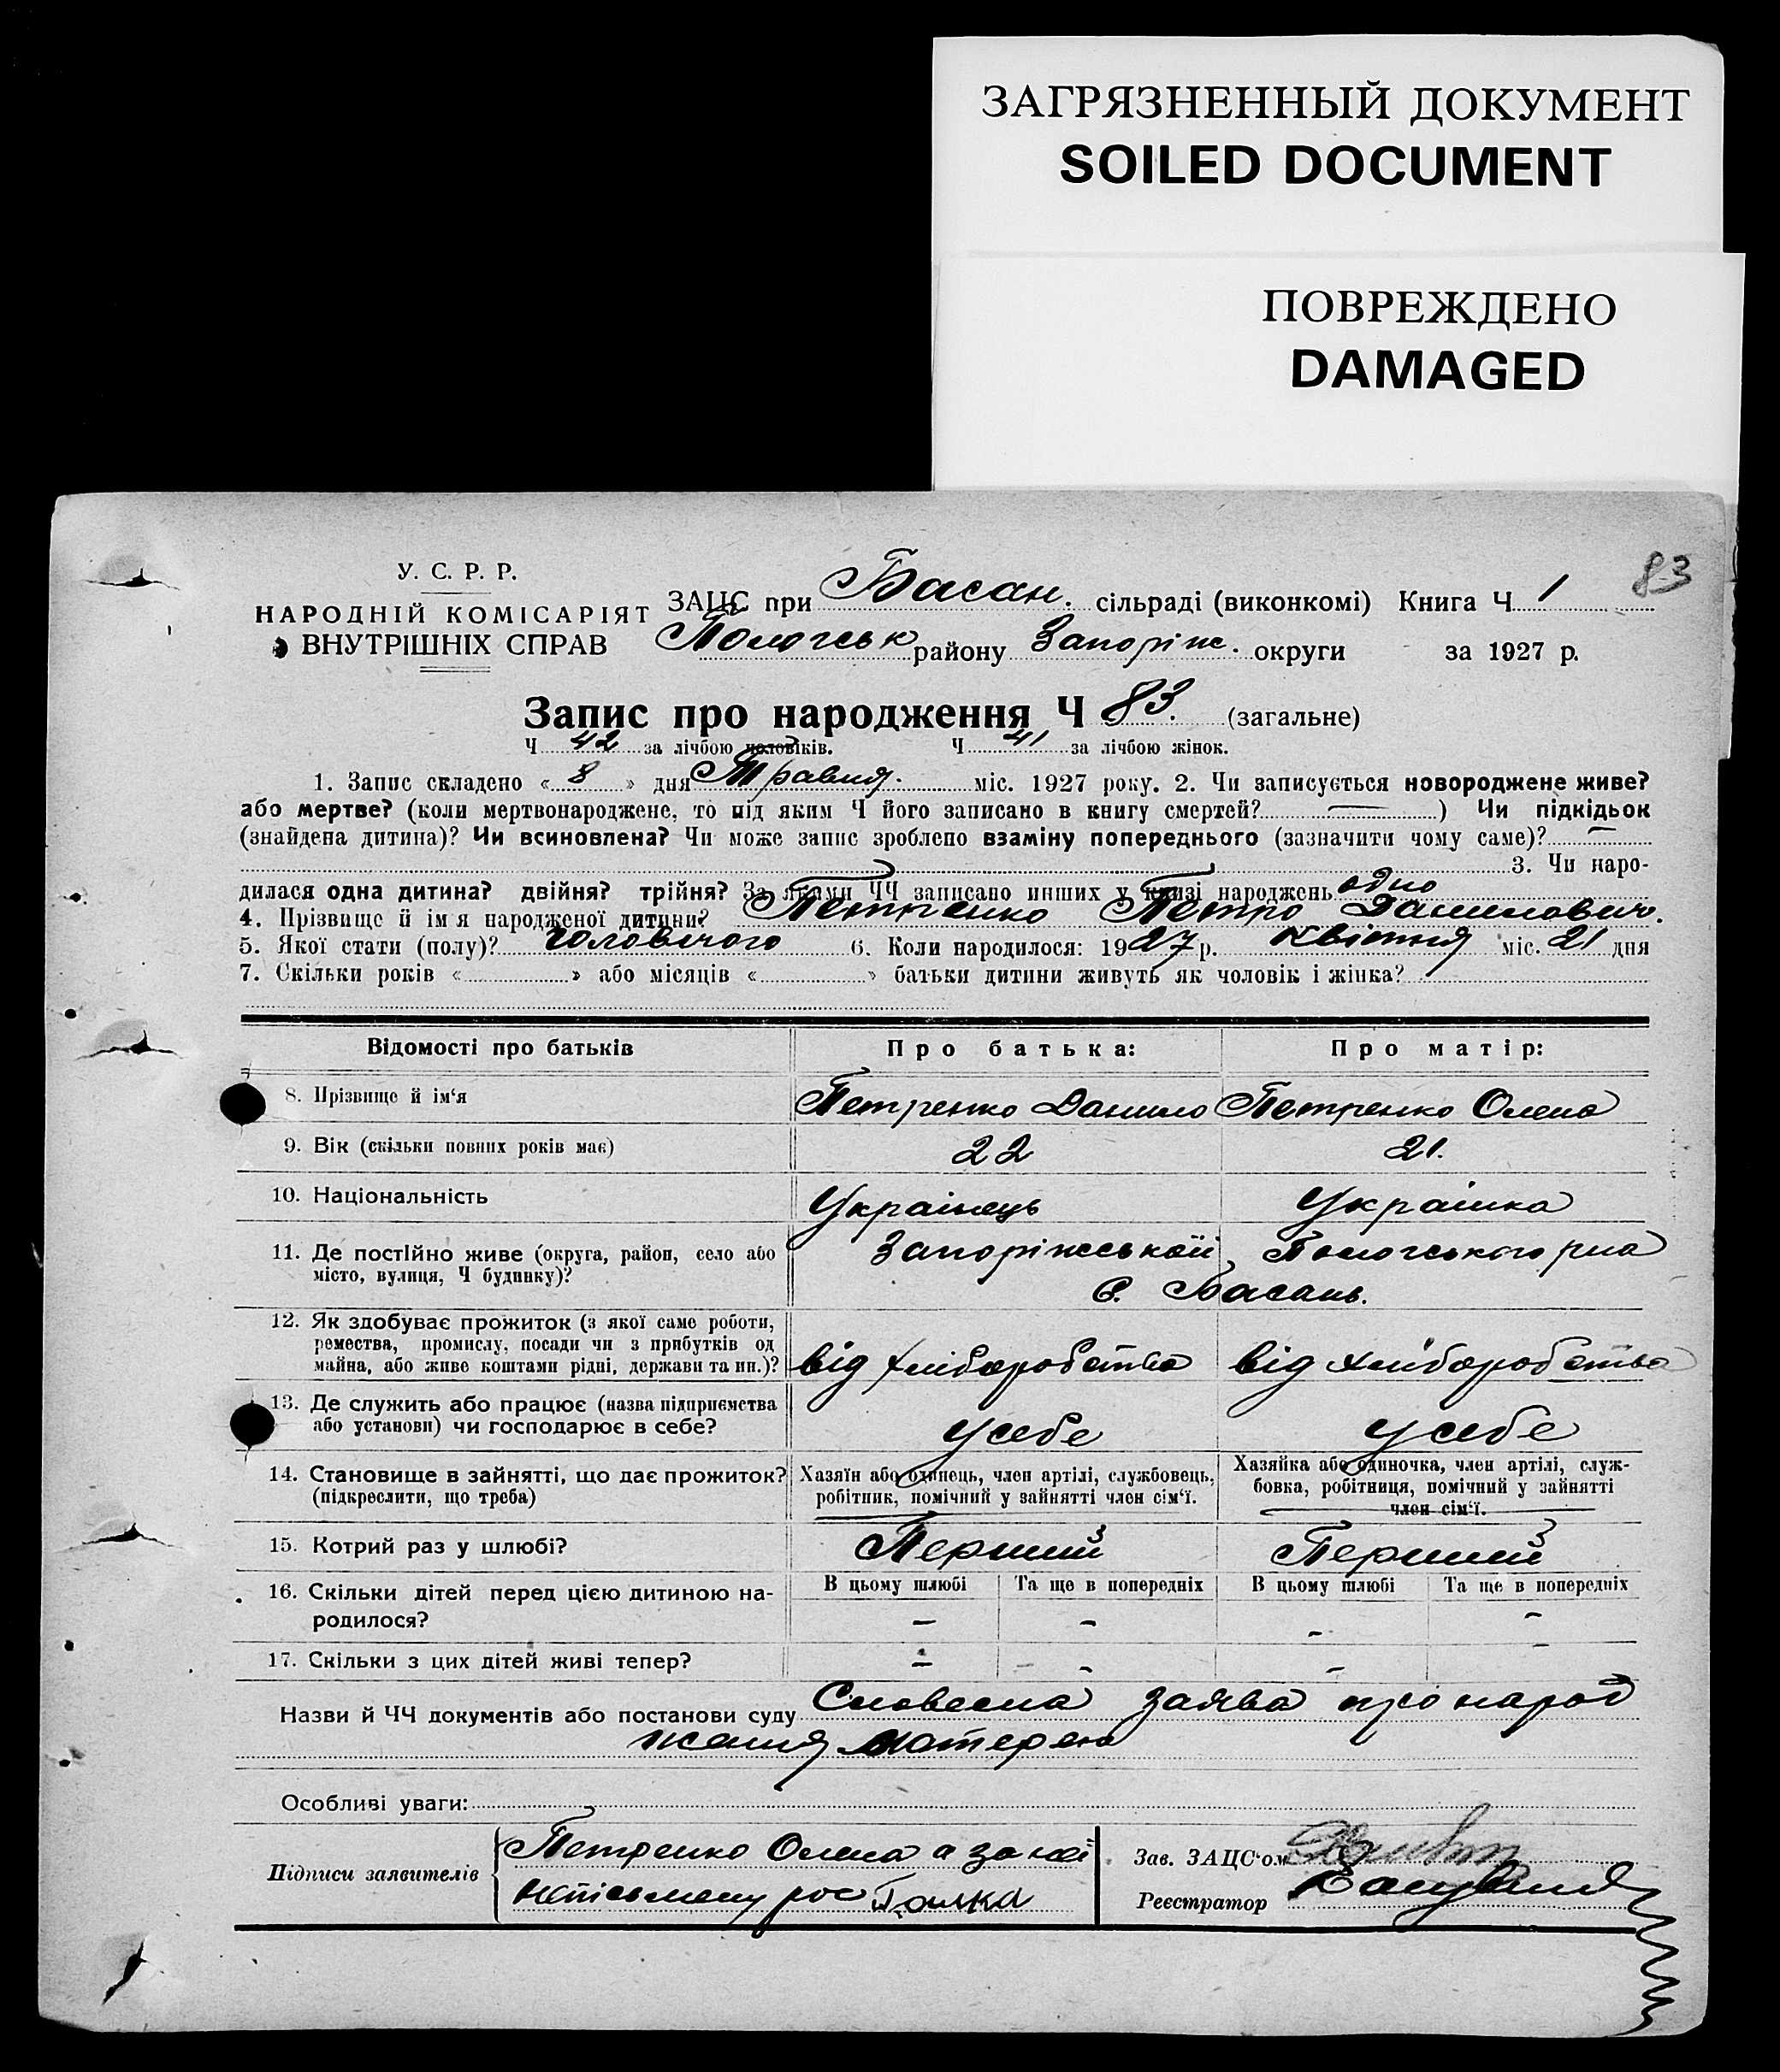 ЗАГРЯЗНЕННЫЙ ДОКУМЕНТ
SOILED DOCUMENT
ПОВРЕЖДЕНО
DAMAGED
83
У. С. Р. Р.
НАРОДНІЙ КОМІСАРІЯТ
ВНУТРІШНІХ СПРАВ
ЗАЦС при Басан. сільраді (виконкомі) Книга Ч 1
Пологськ району Запоріж. округи за 1927 р.
Запис про народження Ч 83. (загальне)
Ч 42 за лічбою чоловіків. Ч 41 за лічбою жінок.
1. Запис складено « 8 » дня Травня. міс. 1927 року. 2. Чи записується новороджене живе?
або мертве? (коли мертвонароджене, то під яким Ч його записано в книгу смертей? — ) Чи підкідьок
(знайдена дитина)? Чи всиновлена? Чи може запис зроблено взаміну попереднього (зазначити чому саме)? —
3. Чи наро-
дилася одна дитина? двійня? трійня? За якими ЧЧ записано инших у книзі народжень одно
4. Прізвище й ім я народженої дитини? Петренко Петро Данилович.
5. Якої стати (полу)? чоловічого 6. Коли народилося: 1927 р. квітня міс. 21 дня
7. Скільки років « » або місяців « » батьки дитини живуть як чоловік і жінка?
Відомості про батьків Про батька: Про матір:
8. Прізвище й ім‘я Петренко Данило Петренко Олена
9. Вік (скільки повних років має) 22 21.
10. Національність Українець Українка
11. Де постійно живе (округа, район, село або
місто, вулиця, Ч будинку)?
Запоріжської Пологського рна
с. Басань.
12. Як здобуває прожиток (з якої саме роботи,
ремества, промислу, посади чи з прибутків од
майна, або живе коштами рідні, держави та ин.)?
від хліборобства від хліборобства
13. Де служить або працює (назва підприємства
або установи) чи господарює в себе?
у себе у себе
14. Становище в зайнятті, що дає прожиток?
(підкреслити, що треба)
Хазяїн або одинець, член артілі, службовець,
робітник, помічний у зайнятті член сім‘ї.
Хазяйка або одиночка, член артілі, служ-
бовка, робітниця, помічний у зайнятті
член сім‘ї.
15. Котрий раз у шлюбі? Перший Перший
16. Скільки дітей перед цією дитиною на-
родилося?
В цьому шлюбі Та ще в попередніх В цьому шлюбі Та ще в попередніх
– – – –
17. Скільки з цих дітей живі тепер? – – – –
Назви й ЧЧ документів або постанови суду Словесна заява про народ
ження матерею
Особливі уваги:
Підписи заявителів
Петренко Олена а за неї
неписьмену рос Галка
Зав. ЗАЦС‘ом
Реєстратор